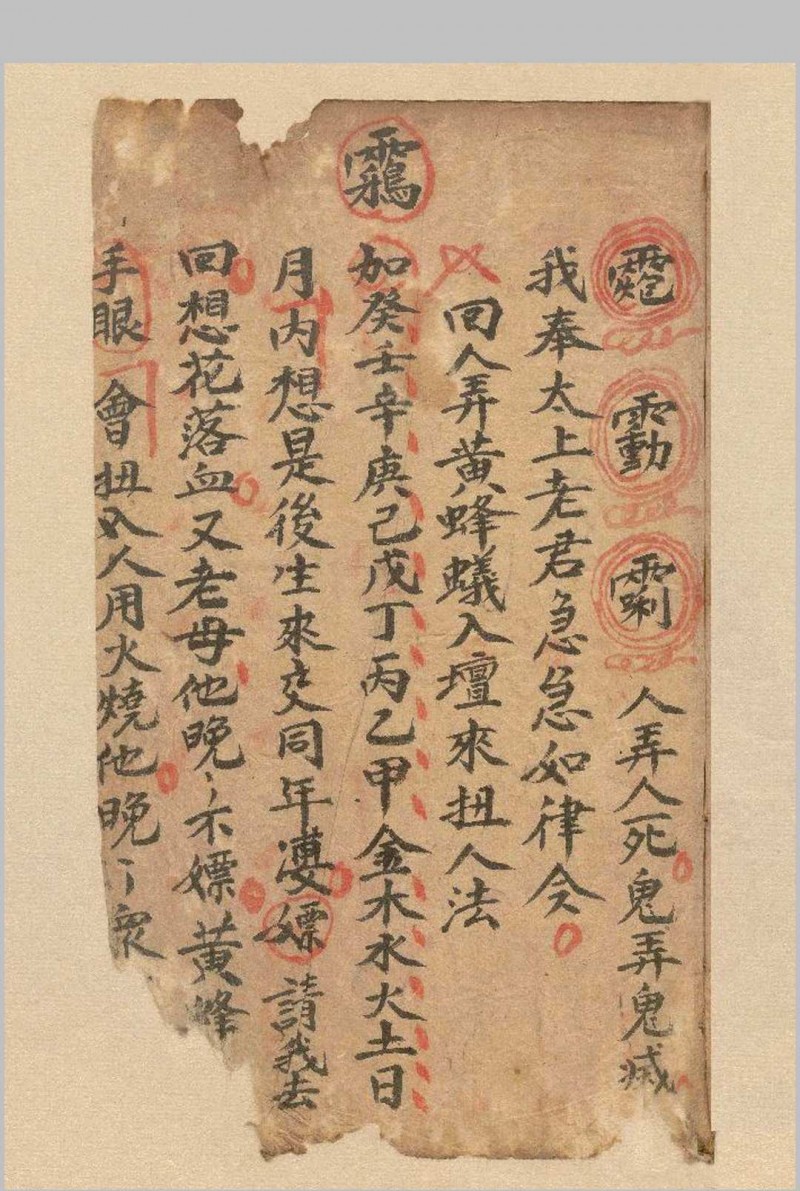 人弄人死鬼弄鬼滅
我奉太上老君急急如律令
回人弄黃蜂蟻入壇來扭人法
加癸壬辛庚己戊丁丙乙甲金木水火土日
月内想是後生來交同年嫖請我去
回想花落血又老母他晚〻不嫖黃蜂
手眼會扭入人用火燒他晚〻衆